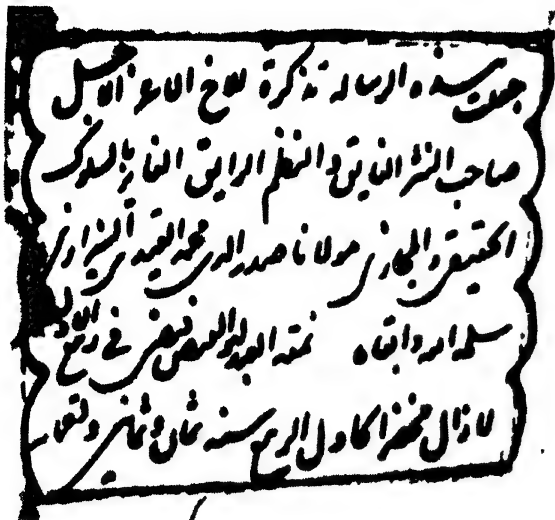 جعلت هذه الرساله تذكرة للاخ الاعز الاجل
صاحب النثر الفايق والنظم الرايق الفايز بالسلوك
الحقيقي والمجازي مولانا صدر الدين محمد الشيرازي
سلمه الله وابقاه نمقه العبد في ربيع الاول
لازال سنه ثمان وثمانين وتسعمائه